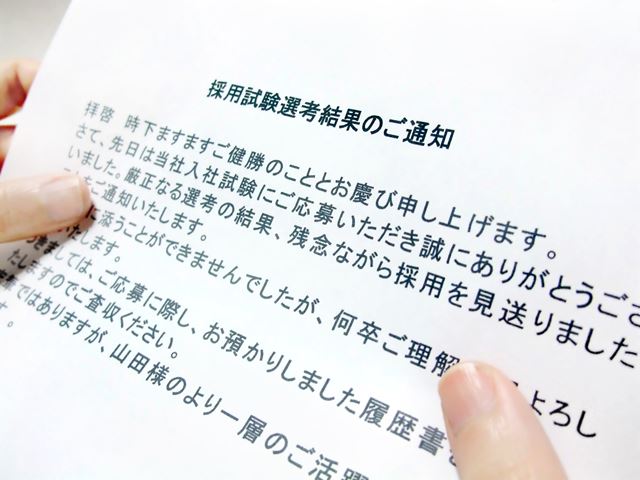 採用試験選考結果のご通知
拝啓 時下ますますご健勝のこととお慶び申し上げます。
さて、先日は当社入社試験にご応募いただき誠にありがとうござ
いました。厳正なる選考の結果、残念ながら採用を見送りました
ご通知いたします。
に添うことができませんでしたが、何卒ご理解 よろし
たします。
きましては、ご応募に際し、お預かりしました履歴書
たしますのでご査収ください。
ではありますが、山田様のより一層のご活躍
す。